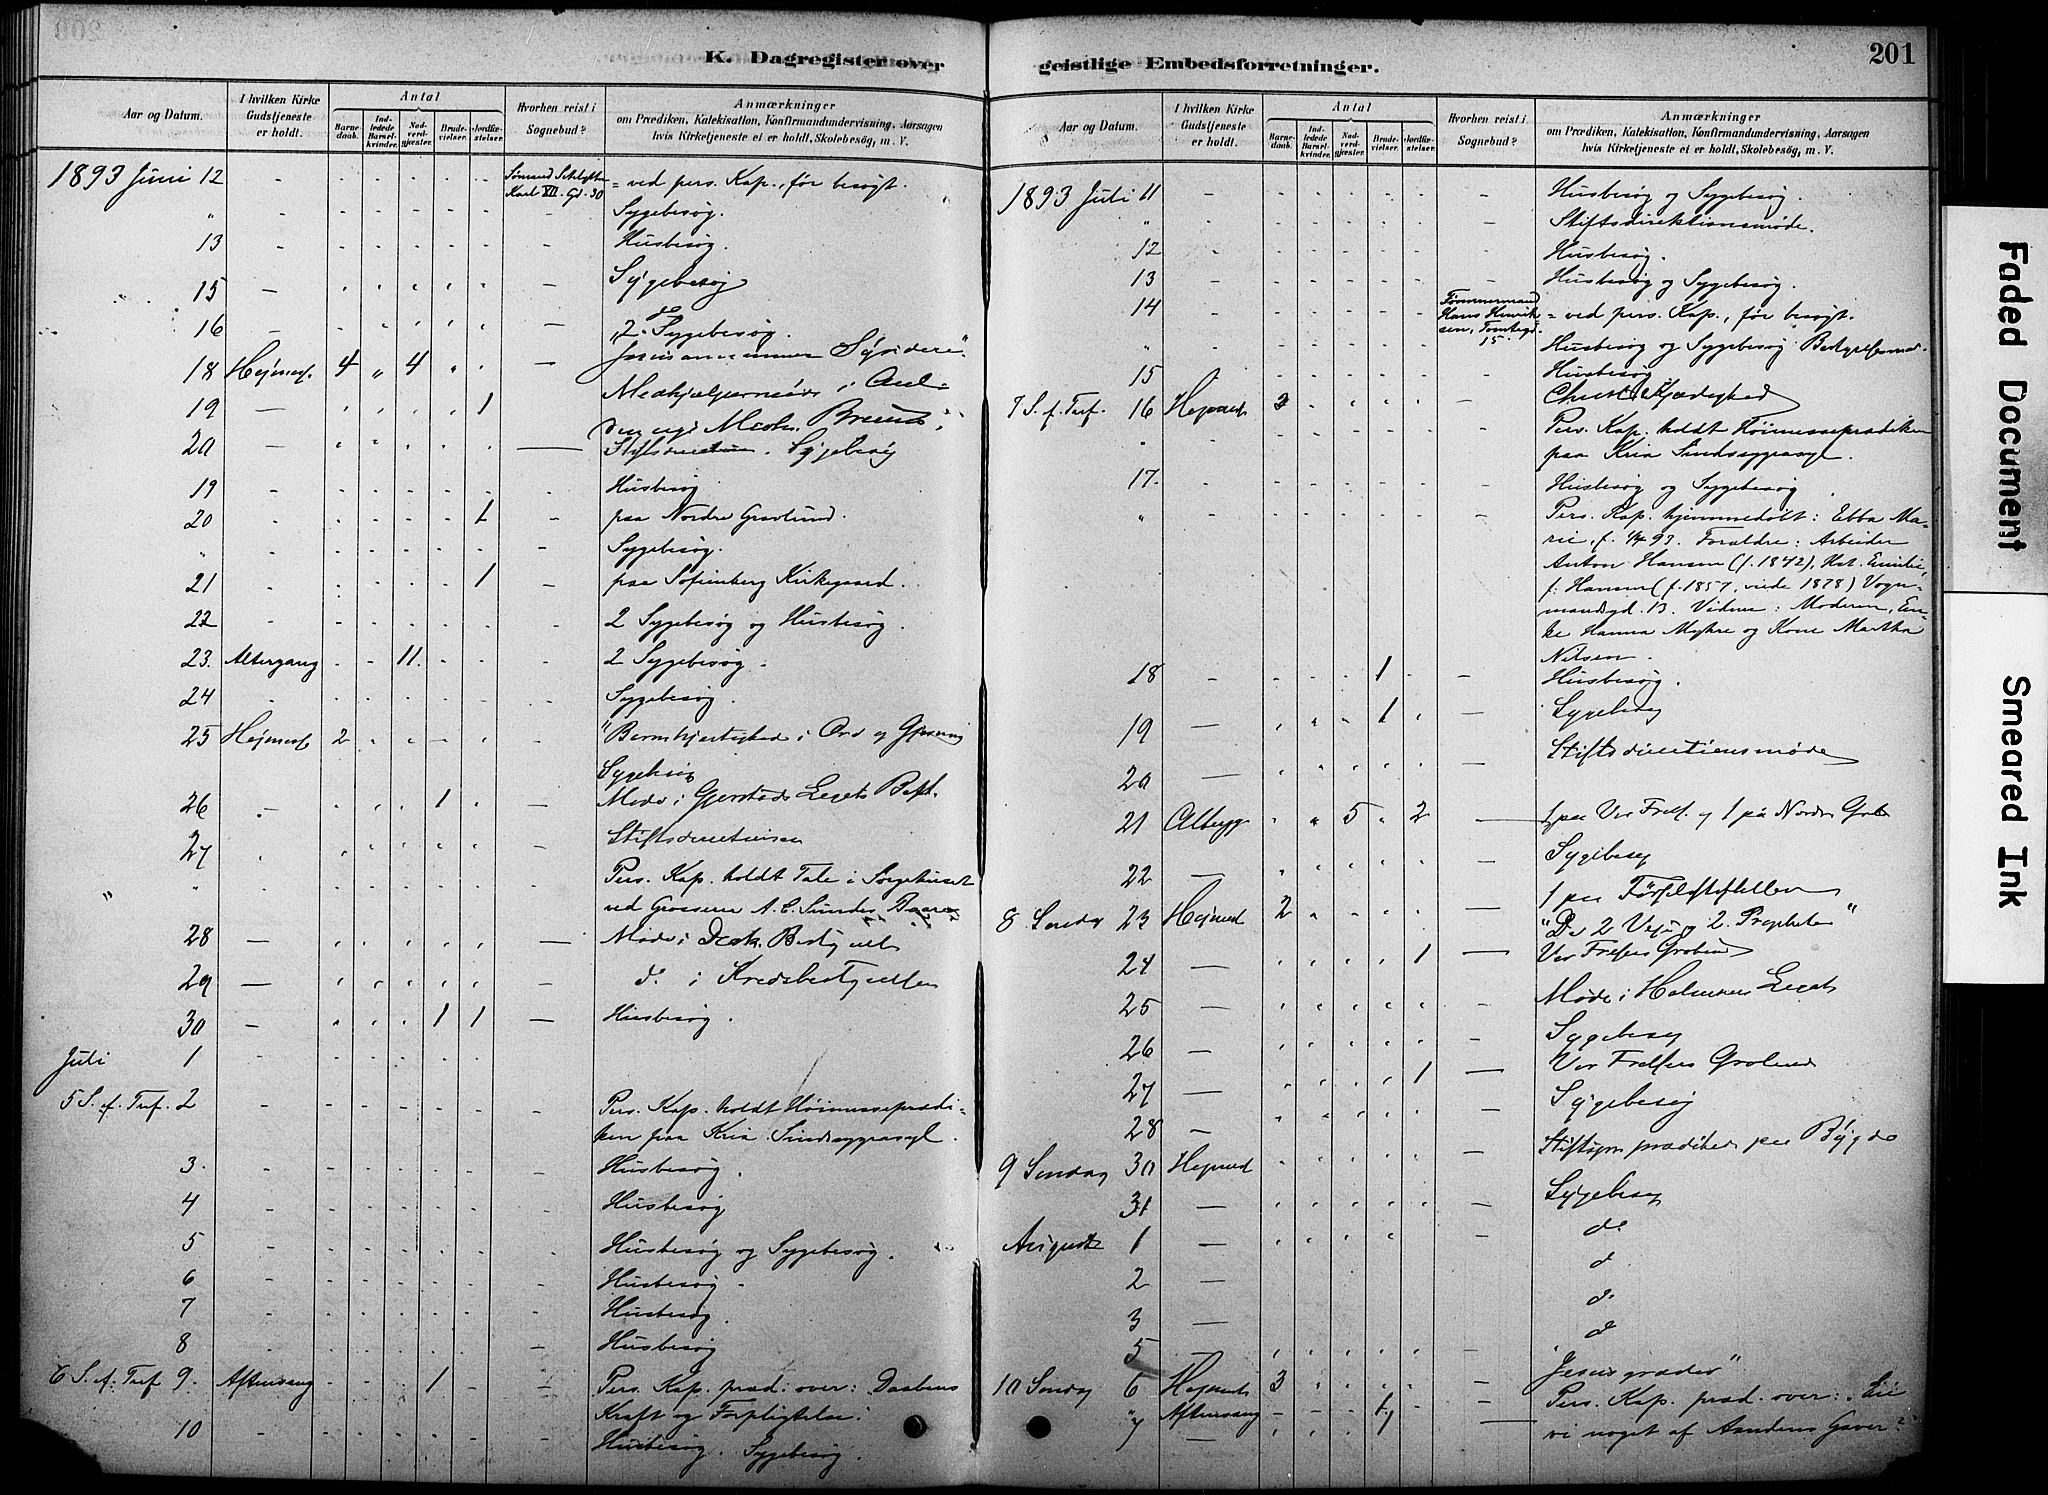 K. Dagregister over
geistlige Embedsforretninger.
201
Aar og Datum.
I hvilken Kirke Gudstjeneste er holdt.
Antal
Barnedaab.
Indledede Barselkvinder.
Nadverdgjæster.
Brudevielser.
Jordfæstelser.
Hvorhen reist i Sognebud?
Anmærkninger
om Prædiken, Katekisation, Konfirmandundervisning, Aarsagen
hvis Kirketjeneste ei er holdt, Skolebesøg, m. V.
1893 Juni 12 Karl XII. Gd. 30 = ved pers. Kap., før besøgt.
" Sygebesøg.
13 Husbesøg.
15 Sygebesøg
16 2 Sygebesøg.
18 Højmesse 4 " 4
19 — 1
20 — Sygebesøg
19 Husbesøg
20 1 paa Nordre Gravlund.
" Sygebesøg.
21 1 paa Sofienberg Kirkegaard.
22 2 Sygebesøg og Husbesøg.
23. Altergang 11. 2 Sygebesøg.
24 Sygebesøg.
25 Højmesse 2 "Barmhjertighed i Ord og Gjerning
Sygebesøg
26 1 Møde i Gjerstads Legats Best.
27 Stiftsdirectionen
" Pers. Kap. holdt Tale i Sørgehuset
ved Grosserer A. C. Sundes Baare
28 — Møde i Bestyrelse
29 — do i Kredsbestyrelsen
30 — 1 1 Husbesøg.
Juli 1
5 S. f. Tref. 2 Pers. Kap. holdt Høimesseprædi-
ken paa Kria Sindssygeasyl.
3. Husbesøg.
4 Husbesøg
5 Husbesøg og Sygebesøg.
6 Husbesøg.
7 Husbesøg.
8 Husbesøg
6 S. f. Tref. 9. Aftensang 1 Pers. Kap. præd. over: Daabens
Kraft og Forpligtelse.
10 Husbesøg. Sygebesøg.
Aar og Datum.
I hvilken Kirke Gudstjeneste er holdt.
Antal
Barnedaab.
Indledede Barselkvinder.
Nadverdgjæster.
Brudevielser.
Jordfæstelser.
Hvorhen reist i Sognebud?
Anmærkninger
om Prædiken, Katekisation, Konfirmandundervisning, Aarsagen
hvis Kirketjeneste ei er holdt, Skolebesøg, m. V.
1893 Juli 11 Husbesøg og Sygebesøg.
" Stiftsdirektionsmøde.
12 Husbesøg.
13 Husbesøg og Sygebesøg.
14 Tømmermand Hans Henriksen, Tomtegd. 15. = ved pers. Kap., før besøgt.
" Husbesøg og Sygebesøg
15 Husbesøg
7 S. f. Tref. 16 Højmesse Christi Kjærlighed
" Pers. Kap. holdt Høimesseprædiken
paa Kria Sindssygeasyl.
17. Husbesøg og Sygebesøg.
" Pers. Kap. hjemmedøbt: Ebba Ma-
rie, f. 93. Forældre: Arbeider
Anton Hansen (f. 1842), Hst. Emilie,
f. Hansen (f. 1857, viede 1878) Vogn-
mandsgd. 13. Vidner: Moderen, En-
ke Hanna Myhre og Kone Martha
Nilsen.
18 1 Husbesøg.
19 — 1 Sygebesøg
20 — Stiftsdirectionsmøde
21 Altergg 5 2 1 paa Vor Frels. og 1 på Nordre Grl
22 — Sygebesøg
1 paa
8 Søndag 23 Højmesse 2 "De 2 Veje og 2 Propheter"
24 — 1 Vor Frelsers Gravlund
25 — Møde i Legat
26 — Sygebesøg
27 — 1 Vor Frelsers Gravlund
28 — Sygebesøg
9 Søndag 30 Højmesse Stiftspr prædiked paa Bygdø
31 — Sygebesøg
August 1 — do
2 — d
3 — do
5 — d
10 Søndag 6 Højmesse 3 "Jesus græder"
" Aftensang 1 Pers. Kap. præd. over: Eie
7 — 1 vi noget af Aandens Gaver?
Faded Document
Smeared Ink